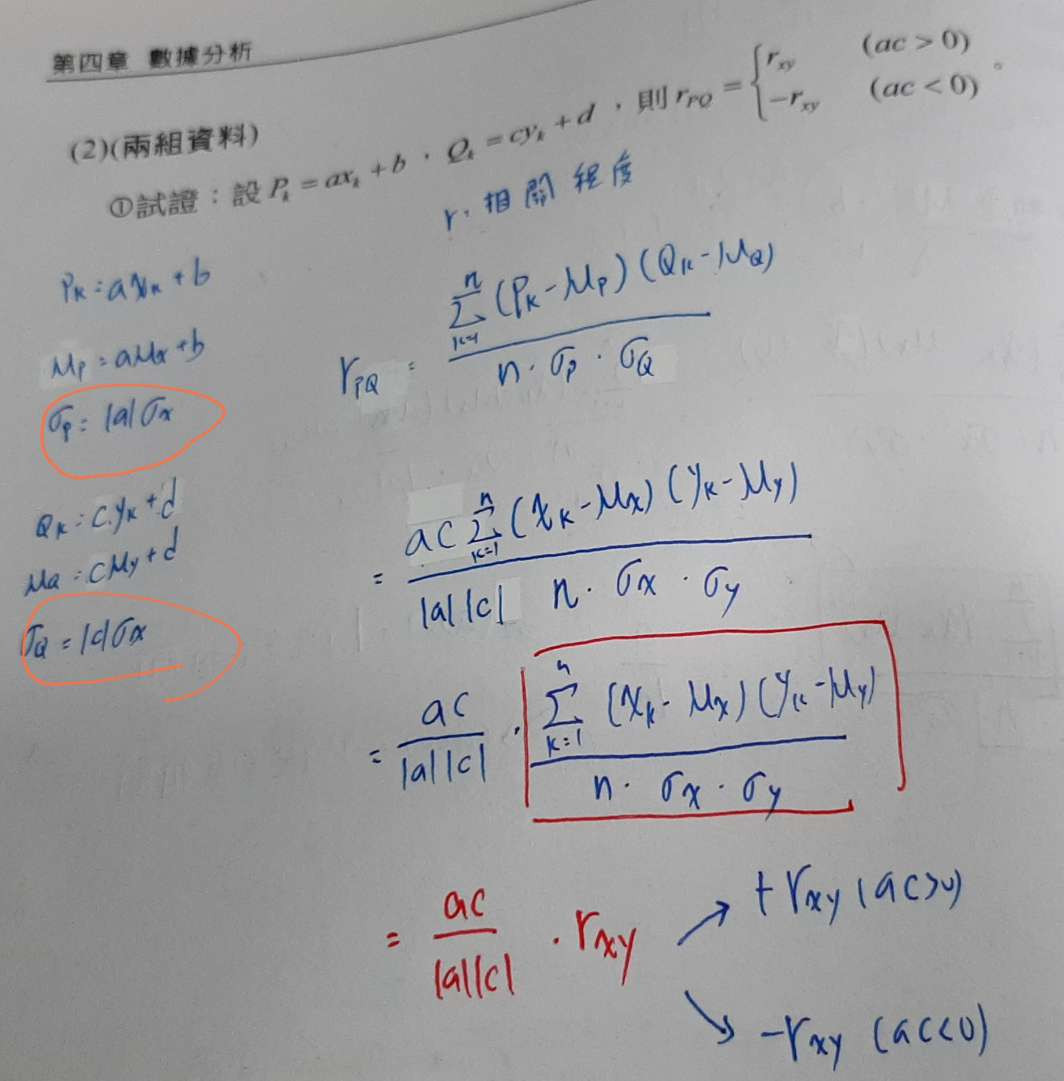 第四章 數據分析
(2)(兩組資料)
①試證：設 P_k = ax_k + b，Q_k = cy_k + d，則 r_PQ = { r_xy (ac > 0)
−r_xy (ac < 0) 。
r. 相關程度
P_k = a x_k + b
μ_P = aμ_x + b
σ_P = |a|σ_x
Q_k = c.y_k + d
μ_Q = cμ_y + d
σ_Q = |c|σ_x
r_PQ = \frac{\sum_{k=1}^{n} (P_k - μ_P)(Q_k - μ_Q)}{n · σ_P · σ_Q}
= \frac{ac \sum_{k=1}^{n} (x_k - μ_x)(y_k - μ_y)}{|a||c| n · σ_x · σ_y}
= \frac{ac}{|a||c|} · \frac{\sum_{k=1}^{n} (x_k - μ_x)(y_k - μ_y)}{n · σ_x · σ_y}
= \frac{ac}{|a||c|} · r_xy ↗ + r_xy (ac>0)
↘ −r_xy (ac<0)